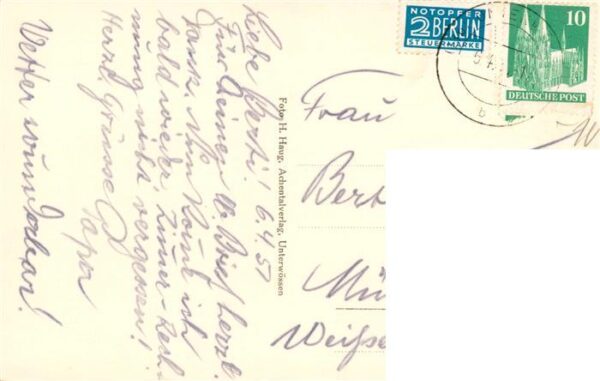 Liebe Berti! 6.4.51
Für Deinen lb. Brief herzl.
Dank. Nun komme ich
bald wieder. Zimmer-
nung nicht vergessen!
Herzl. Grüsse
Papa
Wetter wunderbar!
Foto H. Haug, Achentalverlag, Unterwössen
NOTOPFER
2 BERLIN
STEUERMARKE
10
DEUTSCHE POST
Frau
Bert
Mü
Weiße